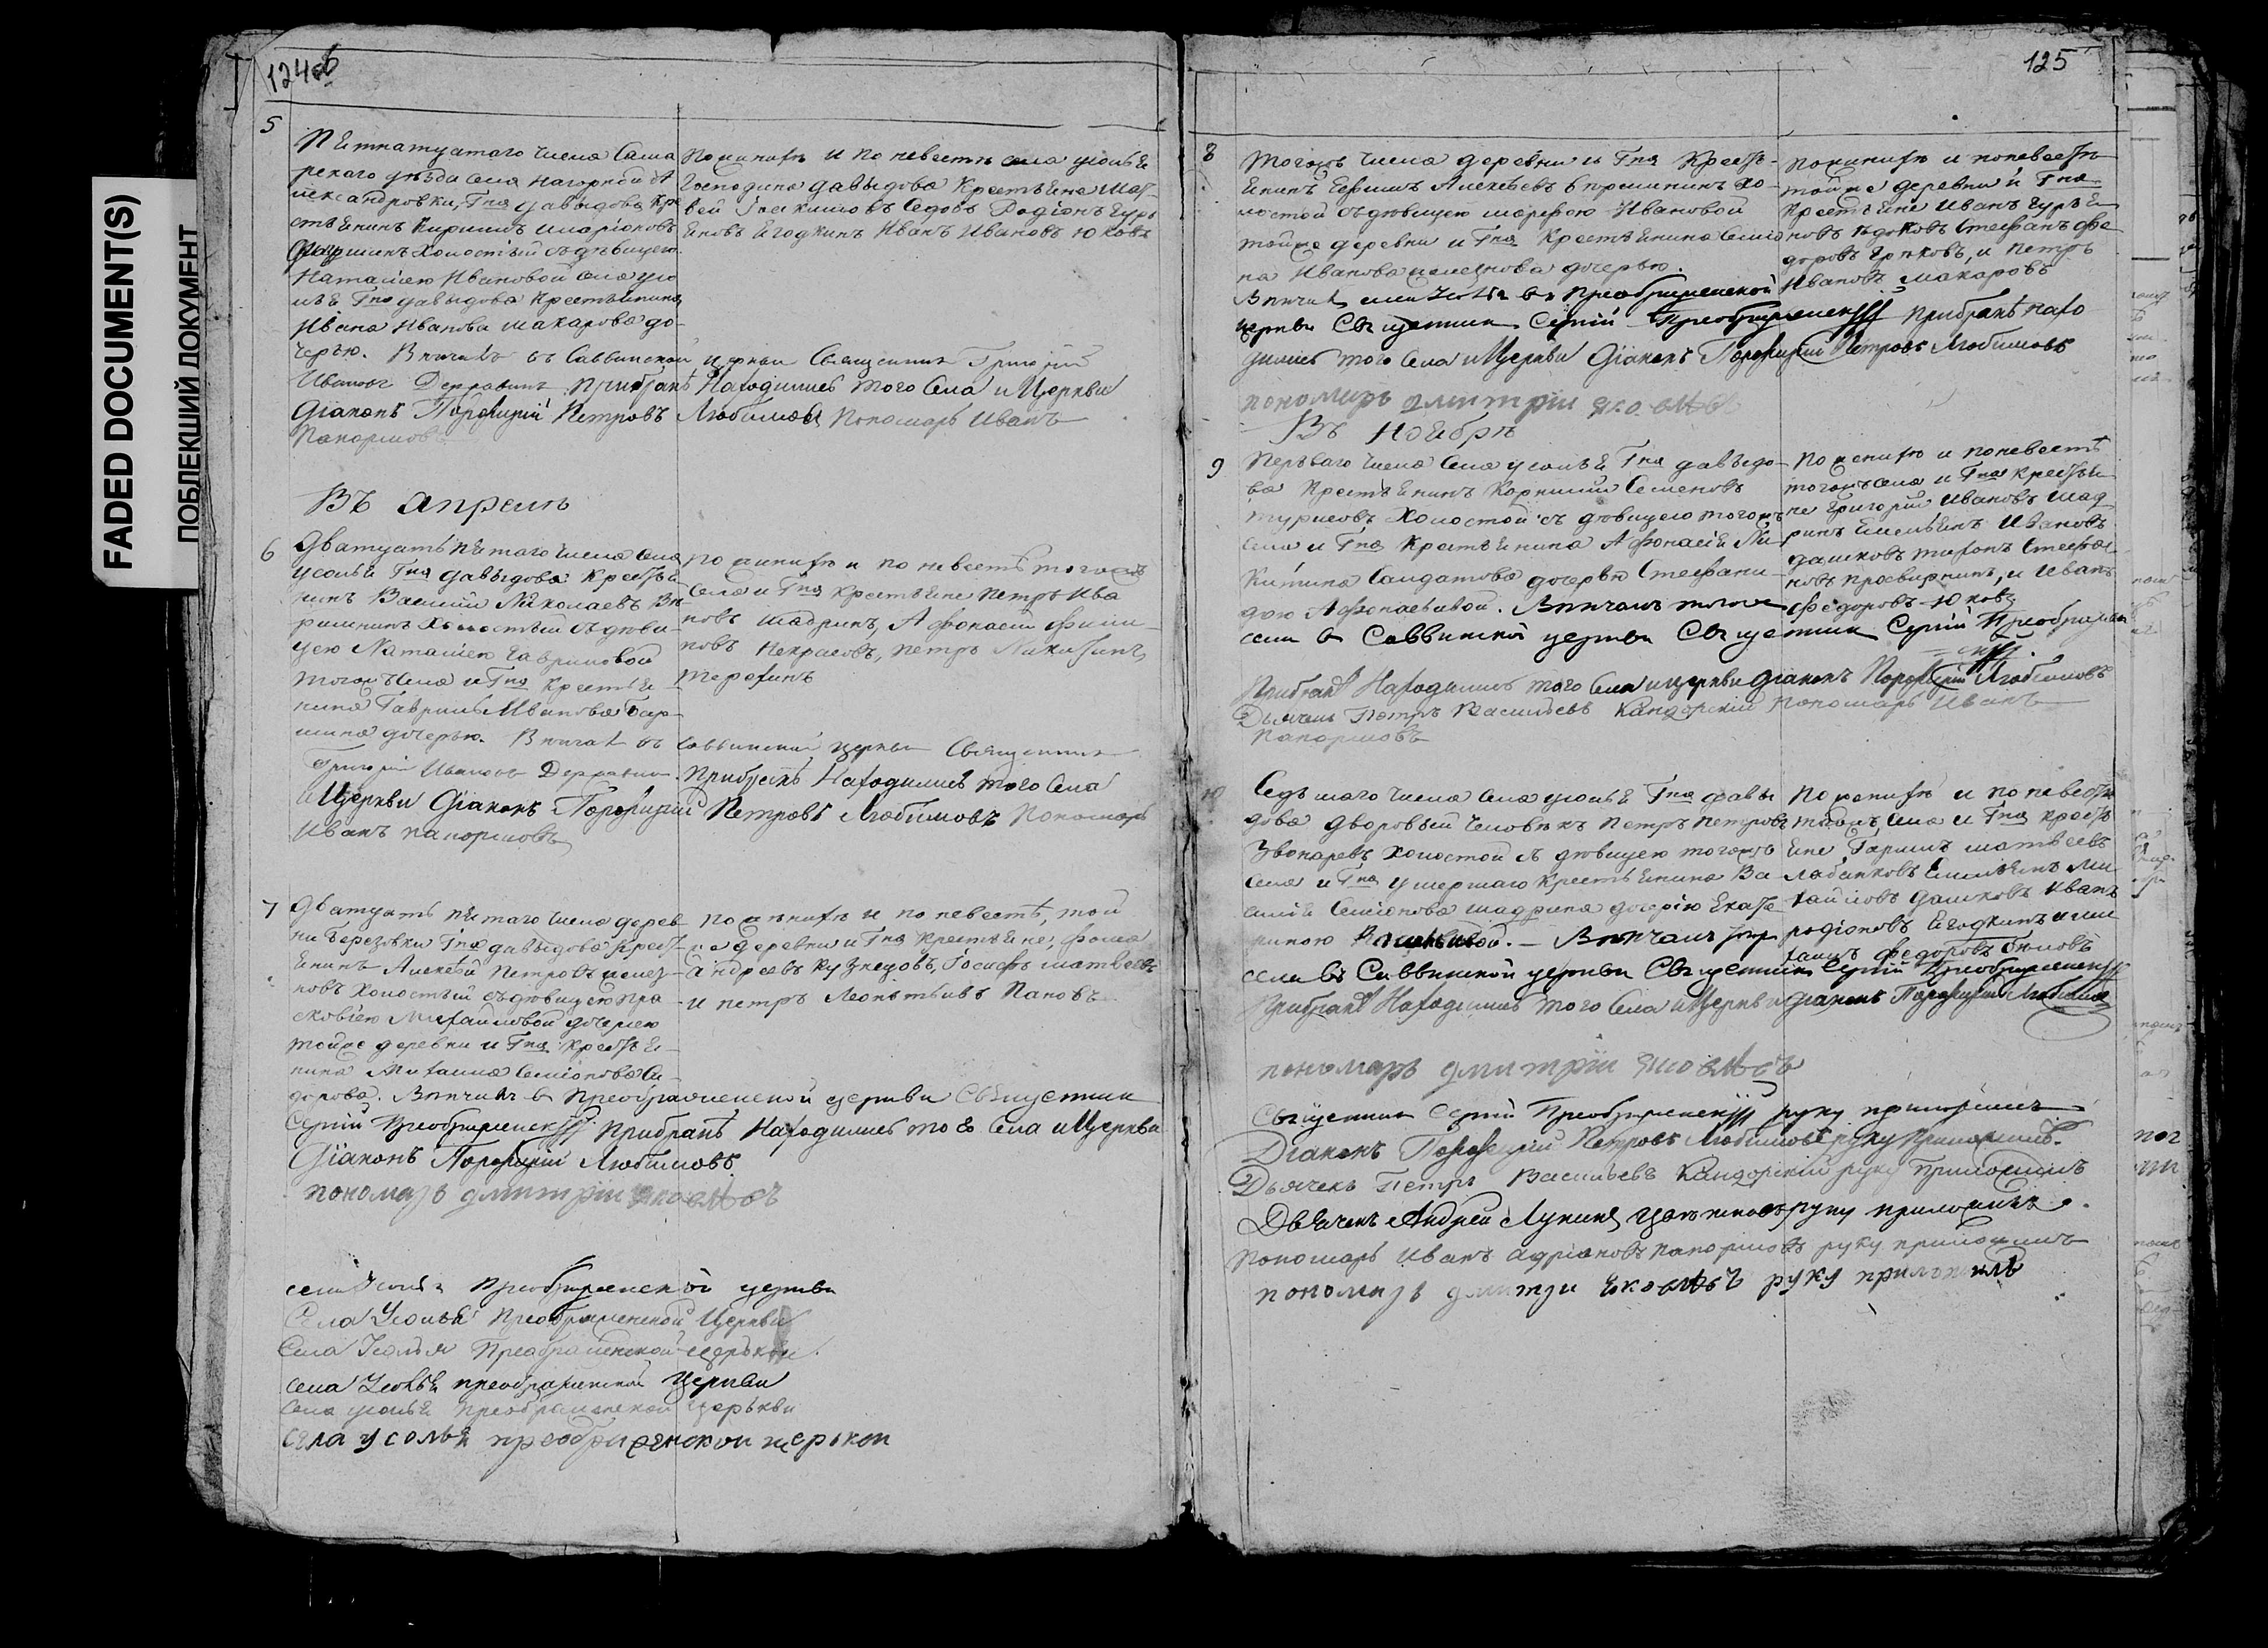 FADED DOCUMENT(S)
ПОБЛЕКШИЙ ДОКУМЕНТ
124об
5
Пятнатцатаго числа Сама
рскаго уезда села Нагорной Ал
ександровки, Гна Давыдова кре
стьянинъ Кирилъ Иларіоновъ
холостый съ девицею
Наталіею Ивановой села усо
лья Гна Давыдова крестьянина
Ивана Иванова Макарова до-
черью. Венчалъ въ Саввинской церкви Священникъ Григорій
Ивановъ Державинъ При бракѣ Находились того Села и Церкви
Діаконъ Порфирий Петровъ Любимовъ Пономарь Иванъ
Панормовъ
По женихе и по невесте села усолья
Господина Давыдова Крестьяне Мат-
вей Іоакимовъ Седовъ Родіонъ Гурь
яновъ Ягодкинъ Иванъ Ивановъ Юковъ
Въ апреле
6
Дватцать пятаго числа села
усолья Гна Давыдова крестья
нинъ Василий Николаевъ
холостый съ деви-
цею Наталіею Гавриловой
тогожъ села и Гна Крестья-
нина Гаврилы Иванова
дочерью. Венчалъ въ Саввинской церкви Священникъ
Григорій Ивановъ Державинъ. При бракѣ Находились того Села
и Церкви Діаконъ Порфирий Петровъ Любимовъ Пономарь
Иванъ Панормовъ
По женихе и по невесте тогожъ
села и Гна крестьяне Петръ Ива
новъ Шадринъ, Афонасей Фили-
повъ Некрасовъ, Петръ Никитинъ
Терехинъ
7
Дватцать пятаго числа дерев
ни Березовки Гна Давыдова крест-
янинъ Алексей Петровъ
холостый съ девицею Пра
сковіею Михайловой дочерью
тойже деревни и Гна крестья-
нина Михайла Семіонова Си-
дорова. Венчалъ в Преображенской церкви Священникъ
Сергій Преображенскій При бракѣ Находились того Села и Церкви
Діаконъ Порфирий Любимовъ
пономарь дмитрiи яковлевъ
по женихе и по невесте, той
же деревни и Гна крестьяне, Фома
Андреевъ Кузнецовъ, Іосифъ Матвеевъ
и Петръ Леонтьивъ Пановъ
села Усолья Преображенской церкви
Села Усолья Преображенской Церкви
Села Усолья Преображенской церкви
села Усолья преображенской Церкви
села усолья Преображенской церькви
села усолья преображенскои церкви
125
8
Тогожъ числа деревни и Гна Кресть-
янинъ Ефимъ Алексеевъ хо-
лостой съ девицею Марфою Ивановой
тойже деревни и Гна Крестьянина Семіо
на Иванова дочерью.
Венчалъ села Усолья въ Преображенской
церкви Священникъ Сергій Преображенскій При бракѣ Нахо
дились того Села и Церкви Діаконъ Порфирий Петровъ Любимовъ
пономарь дмитріи яковлевъ
По женихе и по невесте
тойже деревни и Гна
Крестьяне Иванъ Гурья
новъ Стефанъ Фе
доровъ, и Петръ
Ивановъ Макаровъ
Въ Ноябре
9
Перваго числа села усолья Гна Давыдо-
ва Крестьянинъ Корнилий Семеновъ
холостой съ девицею тогожъ
села и Гна Крестьянина Афонасія Ни-
китина Салдатова дочерью Стефани-
дою Афонасьивой. Венчалъ тогоже
села в Саввинской церкви Священникъ Сергій Преображен
скій.
При бракѣ Находились того Села и церкви діаконъ Порфирий Любимовъ
Дьячекъ Петръ Васильевъ Кандорскій Пономарь Иванъ
Панормовъ
По женихе и по невесте
тогожъ села и Гна крестья
не Григорий Ивановъ Шад
ринъ Емельянъ Ивановъ
Дашковъ Стефа
новъ Просвирнинъ, и Иванъ
Федоровъ Юковъ
10
Седьмаго числа села усолья Гна Давы
дова дворовый человекъ Петръ Петровъ
Звонаревъ холостой съ девицею тогожъ
села и Гна умершаго крестьянина Ва
силія Семіонова Шадрина дочерію Екате
риною Васильевой. — Венчалъ
села въ Саввинской церкви Священникъ Сергій Преображенскій
При бракѣ Находились того Села и Церкви діаконъ Порфирий Любимовъ
пономарь дмитріи яковлевъ
По женихе и по невесте
тогожъ села и Гна кресть
яне Матвеевъ
Лабанковъ Емельянъ Ми
хайловъ Дашковъ Иванъ
Родіоновъ Ягодкинъ
Федоровъ
Священникъ Сергій Преображенскій руку приложилъ
Діаконъ Порфирий Петровъ Любимовъ руку Приложилъ.
Дьячекъ Петръ Васильевъ Кандорскій руку Приложилъ
Дьячекъ Андрей Лукинъ руку приложилъ.
Пономарь Иванъ Адріановъ Панормовъ руку приложилъ
пономарь дмитри яковлевъ руку приложилъ